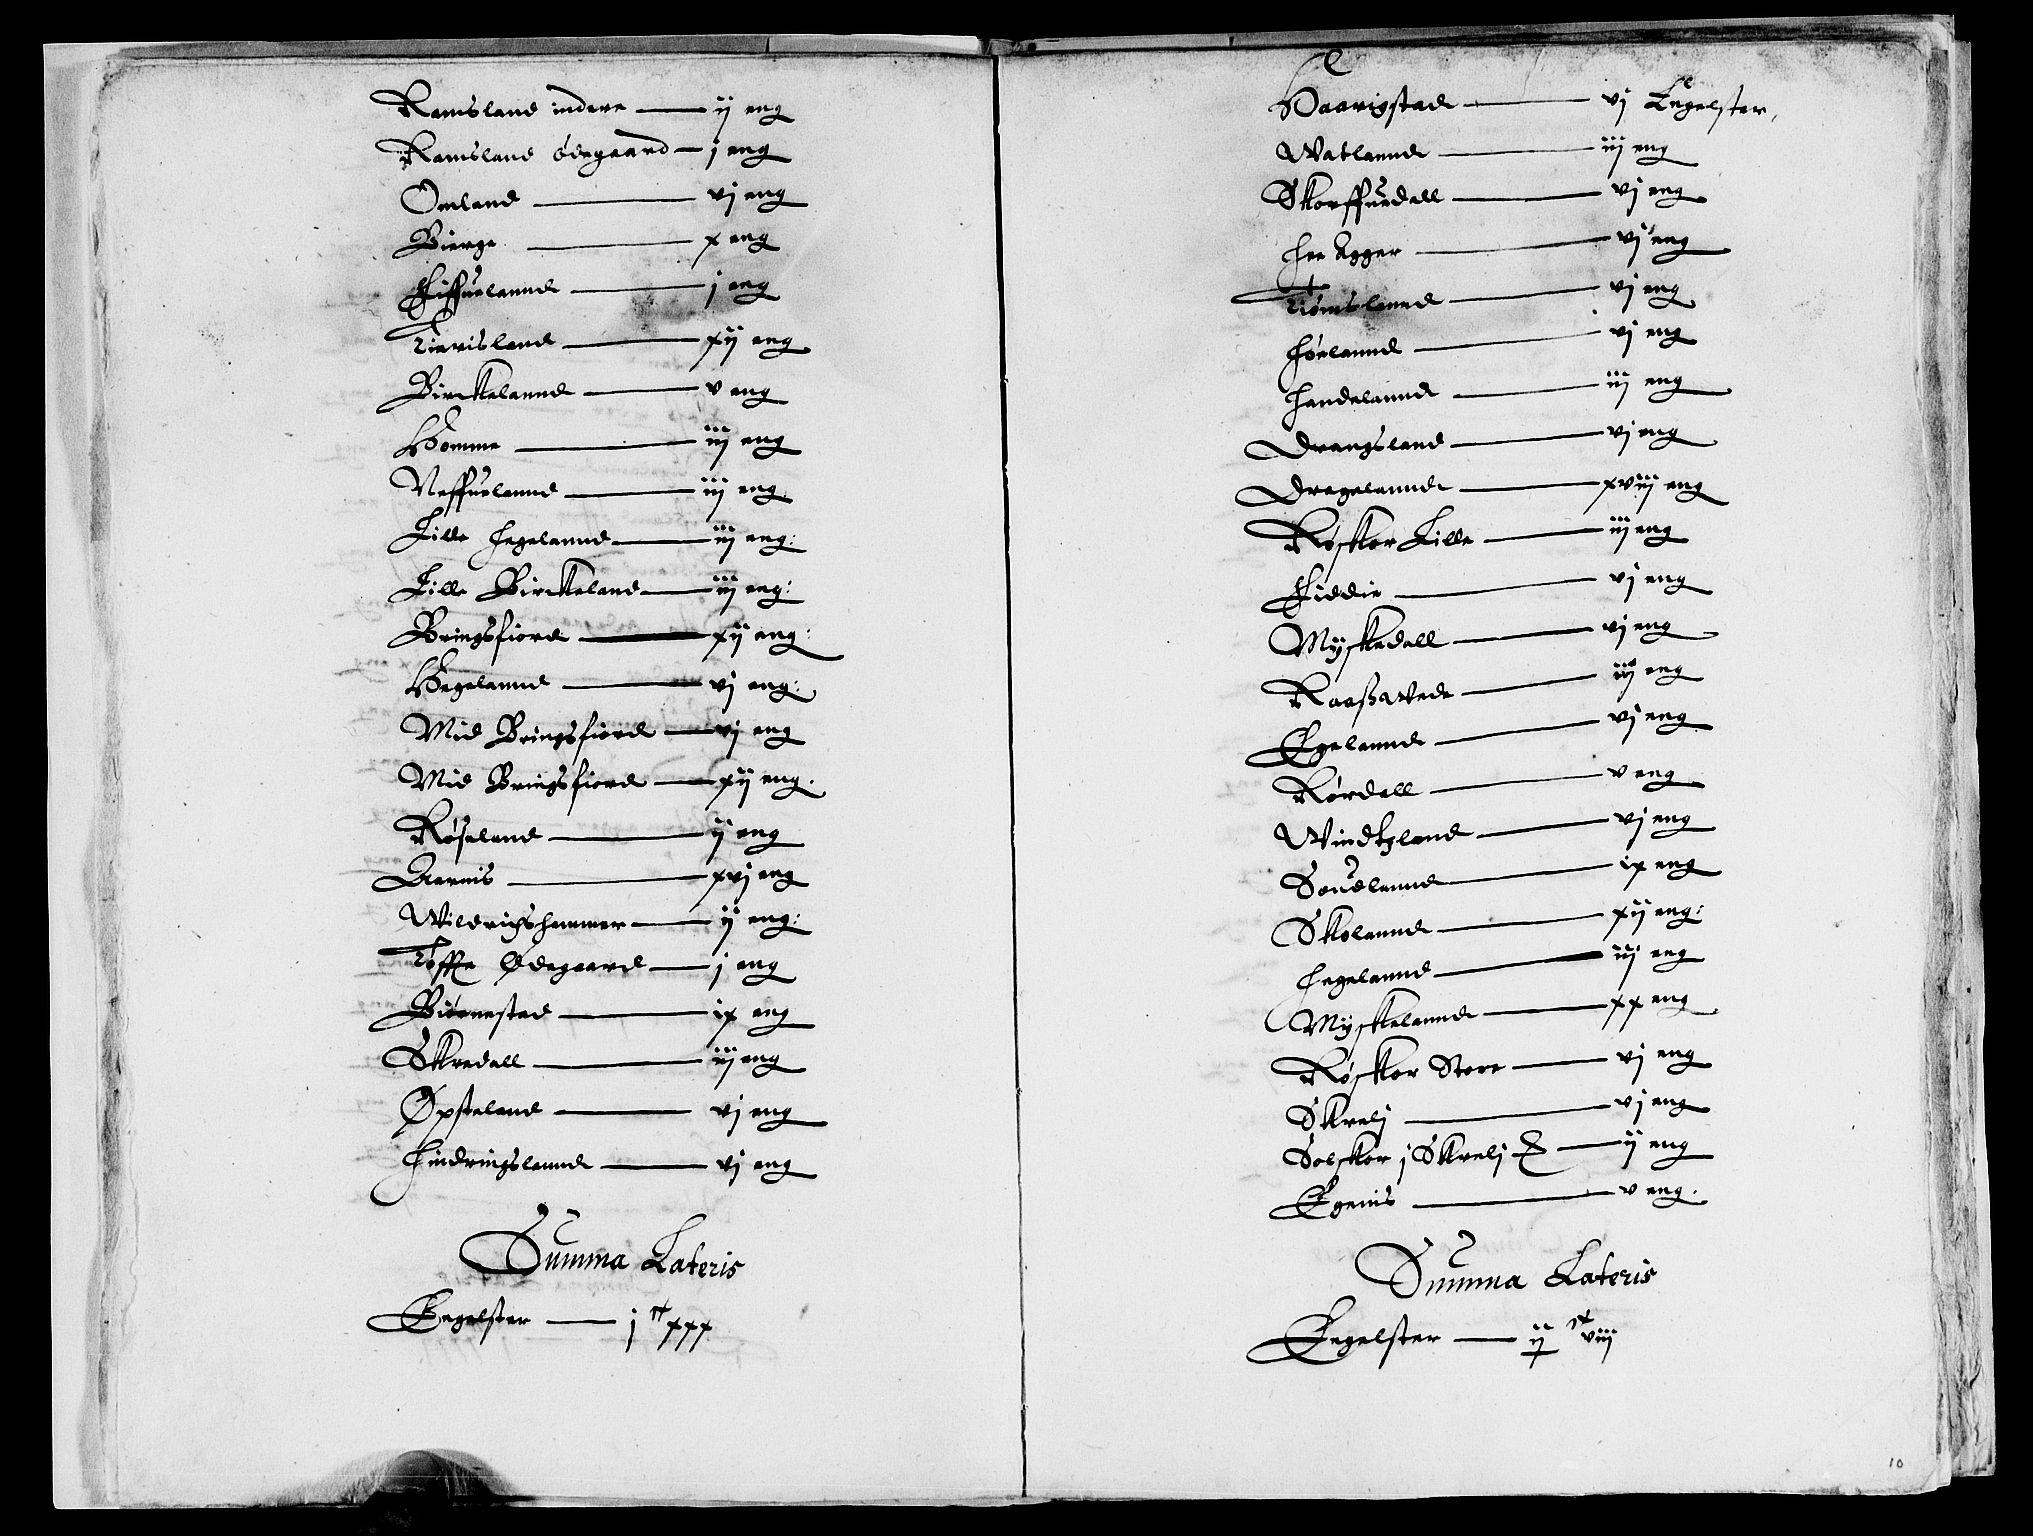 Ramsland indere — ij eng
Ramsland ödegaard — j eng
Omland — vj eng
Bierge — x eng
Fiffuelannd — j eng
Tierisland — xij eng
Birckelannd — v eng
Homme — iij eng
Neffuelannd — iij eng
Lille Hegelannd — iij eng:
Lille Birckeland — iij eng:
Bringsfiord — xij eng:
Hegelannd — vj eng:
Mid Bringsfiord — vj eng
Mid Bringsfiord — xij eng:
Röseland — ij eng
Aarnis — xvj eng
Wildrigshammer — ij eng:
Töffte Ødegaard — j eng
Biörnestad — ix eng
Skredall — iij eng
Øpsteland — vj eng
Hindringslannd — vj eng
Summa Lateris
Engelster — j c xxx
Haarigstad — vj Engelster,
Watlannd — iij eng
Skorffuedall — vj eng
Her Egger — vj eng
Tiömslannd — vj eng
Hörlannd — vj eng
Handelannd — iij eng
Drangsland — vj eng
Dragelannd — xviij eng
Röskor Lille — iij eng
Fiddie — vj eng
Myskedall — vj eng
Raaßwede — iij eng
Egelannd — vj eng
Rördall — v eng
Windtzland — vj eng
Soudlannd — ix eng
Skolannd — xij eng:
Hegelannd — iij eng
Myskelannd — xx eng
Röskor Store — vj eng
Skrelj — vj eng
Solskor j Skrelj — ij eng
Egenis — v eng.
Summa Lateris
Engelster — ij c viij
10